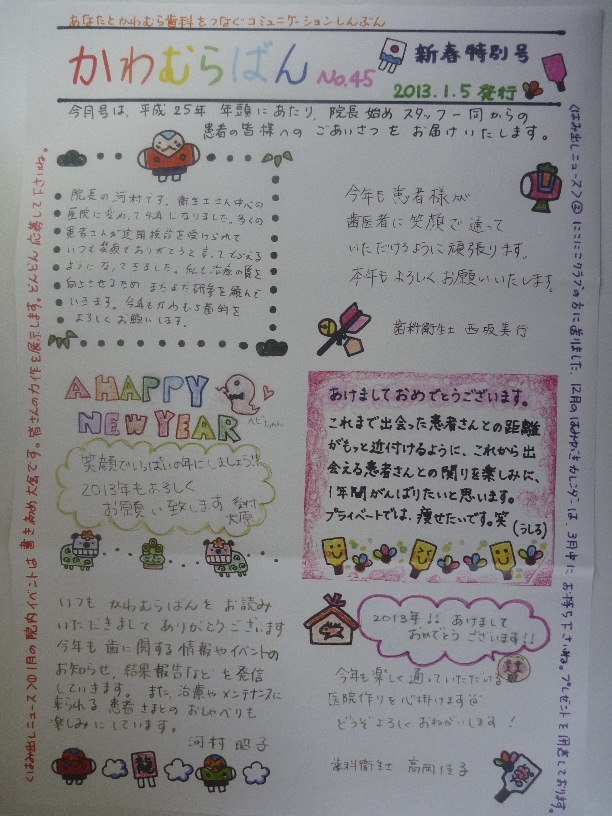 あなたとかわむら歯科をつなぐコミュニケーションしんぶん
かわむらばん No.45
新春特別号
2013.1.5 発行
今月号は、平成25年 年頭にあたり、院長始め スタッフ一同からの
患者の皆様への ごあいさつを お届けいたします。
院長の河村です。衛生士さん中心の
医院に変めて4年になりました。多くの
患者さんが定期検診を受けられて
いつも笑顔でありがとうと言ってもらえる
ようになってきました。私も治療の質を
向上させるため まだまだ研夆を積んで
いきます。今年もかわむら歯科を
よろしくお願いします。
今年も患者様が
歯医者に笑顔で通って
いただけるように頑張ります。
本年もよろしくお願いいたします。
歯科衛生士 西坂美行
A HAPPY
NEW YEAR
へビちゃん
笑顔でいっぱいの年にしましょう!!
2013年もよろしく
お願い致します 受付
大原
あけましておめでとうございます。
これまで出会った患者さんとの距離
がもっと近付けるように、これから出
会える患者さんとの関りを楽しみに、
1年間がんばりたいと思います。
プライベートでは、痩せたいです。笑
(うしろ)
いつも かわむらばんを お読み
いただきまして ありがとうございます
今年も 歯に関する情報やイベントの
お知らせ、結果報告などを 発信
していきます。また、治療やメンテナンスに
来られる 患者さまとの おしゃべりも
楽しみにしています。
河村 昭子
龍
2013年!! あけまして
おめでとう ございます!!
今年も楽しく通っていただける
医院作りを心掛けます
どうぞよろしくおねがいします!
歯科衛生士 高岡佳子
<はみ出しニュース>①1月の院内イベントは 書きぞめ大会です。皆さんの力作を展示します。どんどん 応募して下さいね。
<はみ出しニュース>② にこにこクラブの方に送りました 12月のはみがきカレンダーは、3月中に お持ち下さいね。プレゼントを用意しております。